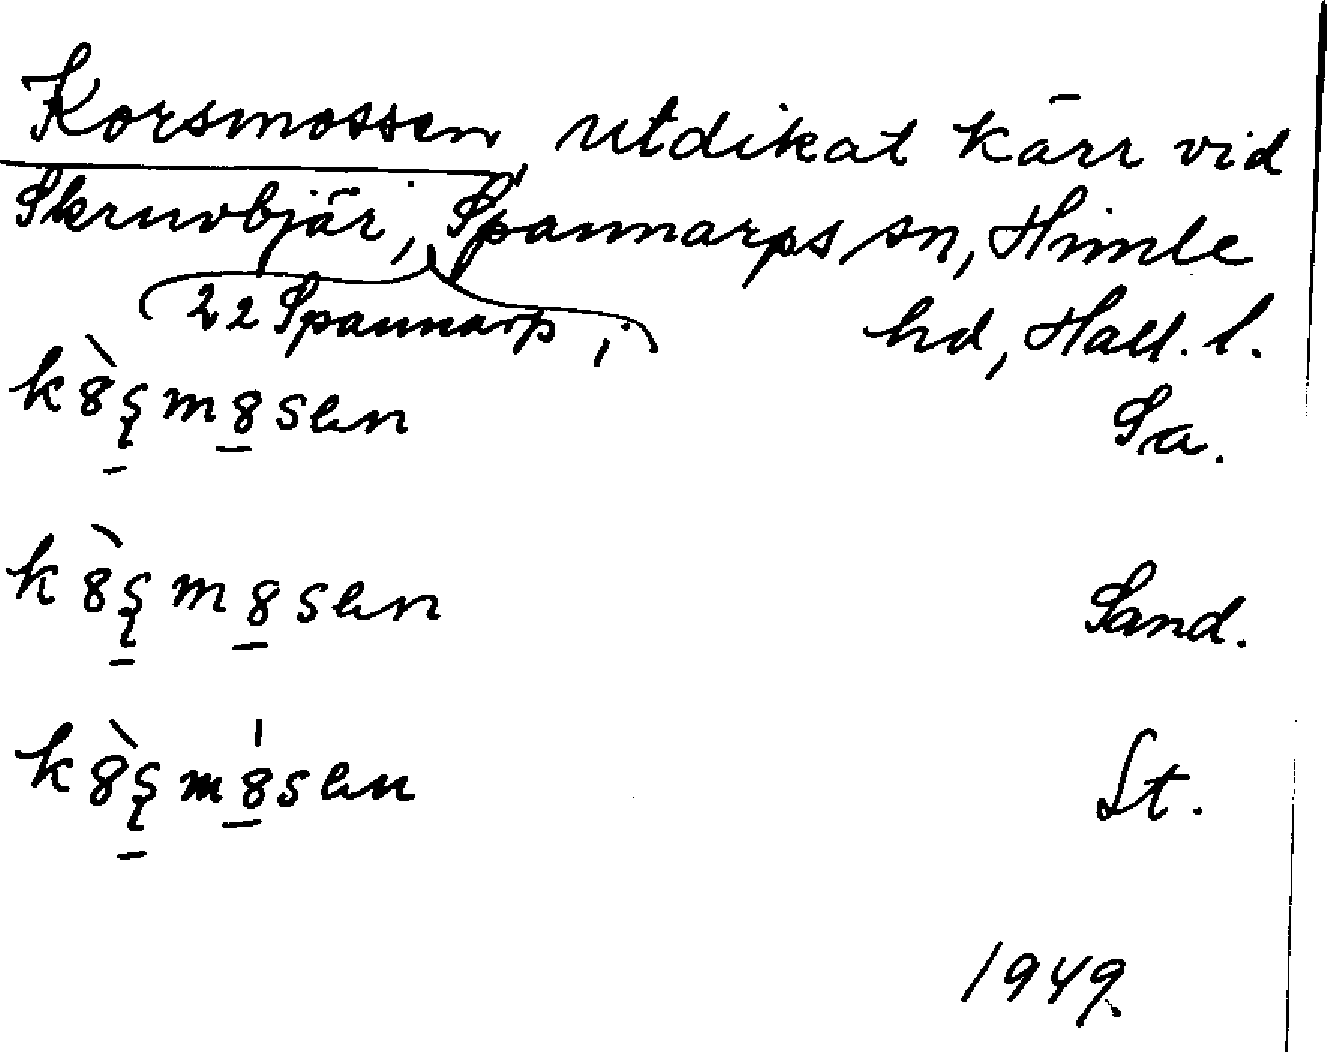 Korsmossen, utdikat kärr vid
Skruvbjär, Spannarps sn, Himle
22 Spannarp, i hd, Hall. l.
Sa.
Sand.
St.
1949